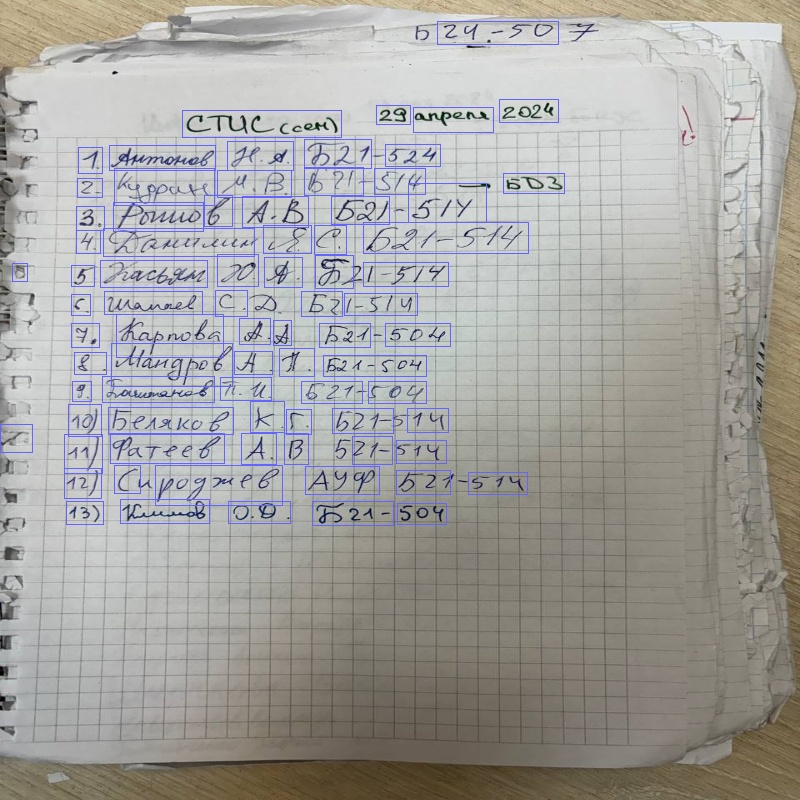 Б24-507
СТИС (сем) 29 апреля 2024
1. Антонов Н. А. Б21-524
2. Кудрин М. В. Б21-514 → БДЗ
3. Рышов А. В Б21-514
4. Данилин Я. С. Б21-514
5 Касьян Ю А. Б21-514
6. Шалаев С. Д. Б21-514
7. Карпова А. А Б21-504
8. Мандров А. П. Б21-504
9. Баштанов П. И. Б21-504
10) Беляков К. Г. Б21-514
11) Фатеев А. В Б21-514
12) Сироджев АУФ Б21-514
13) Климов О. Д. Б21-504